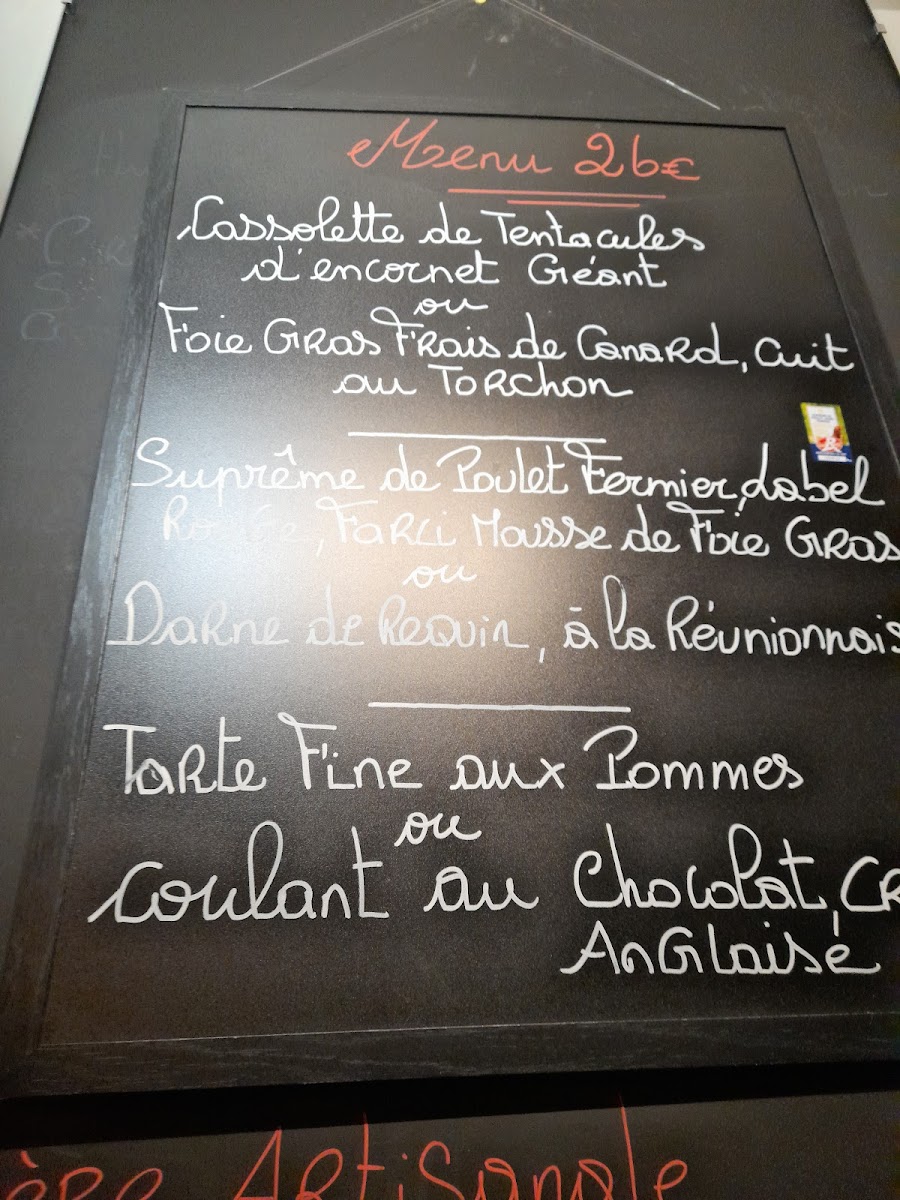 Menu 26€
Cassolette de Tentacules
d'encornet Géant
ou
Foie Gras Frais de Canard, Cuit
au Torchon
Suprême de Poulet Fermier, Label
Rouge, Farci Mousse de Foie Gras
ou
Darne de Requin, à la Réunionnais
Tarte Fine aux Pommes
ou
Coulant au Chocolat, CR
Anglaise
ère Artisanale